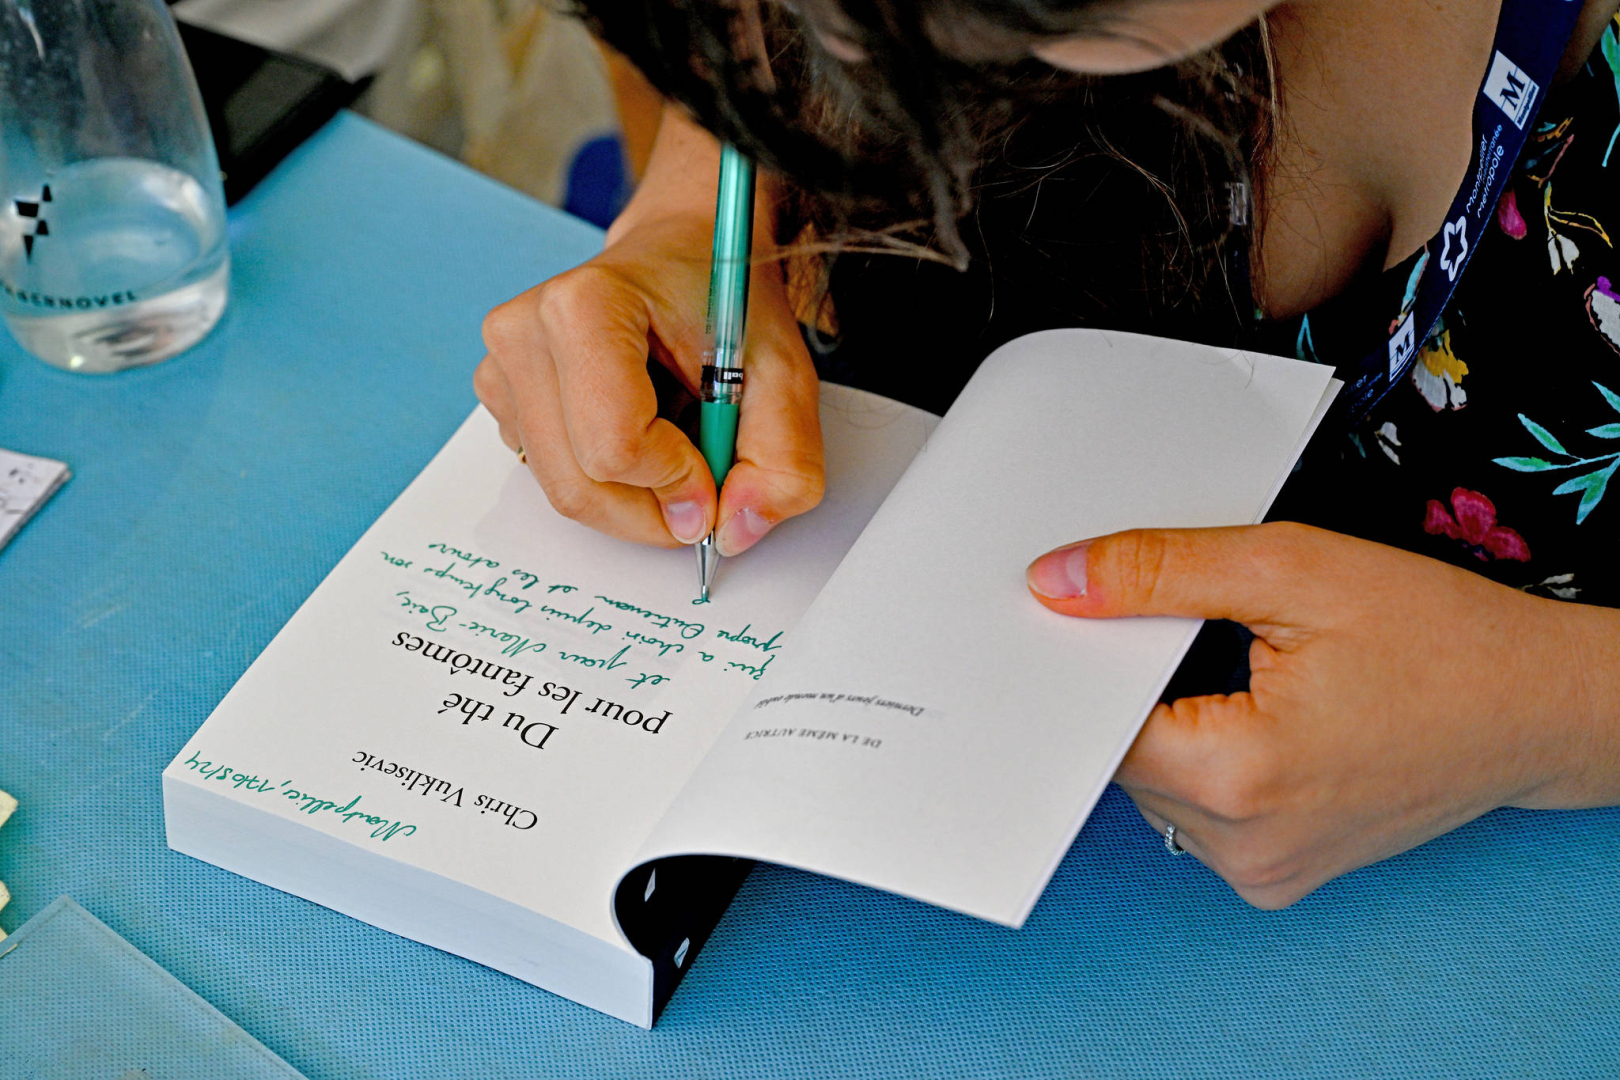 Montpellier, 17/05/24
Chris Vuklisevic
Du thé
pour les fantômes
et pour Marie-Baie,
qui a choisi depuis longtemps son
propre Outreman et les atours
DE LA MÊME AUTRICE
Derniers jours d'un monde oublié
M
Montpellier
Méditerranée
Métropole
M
ABERNOVEL
ball